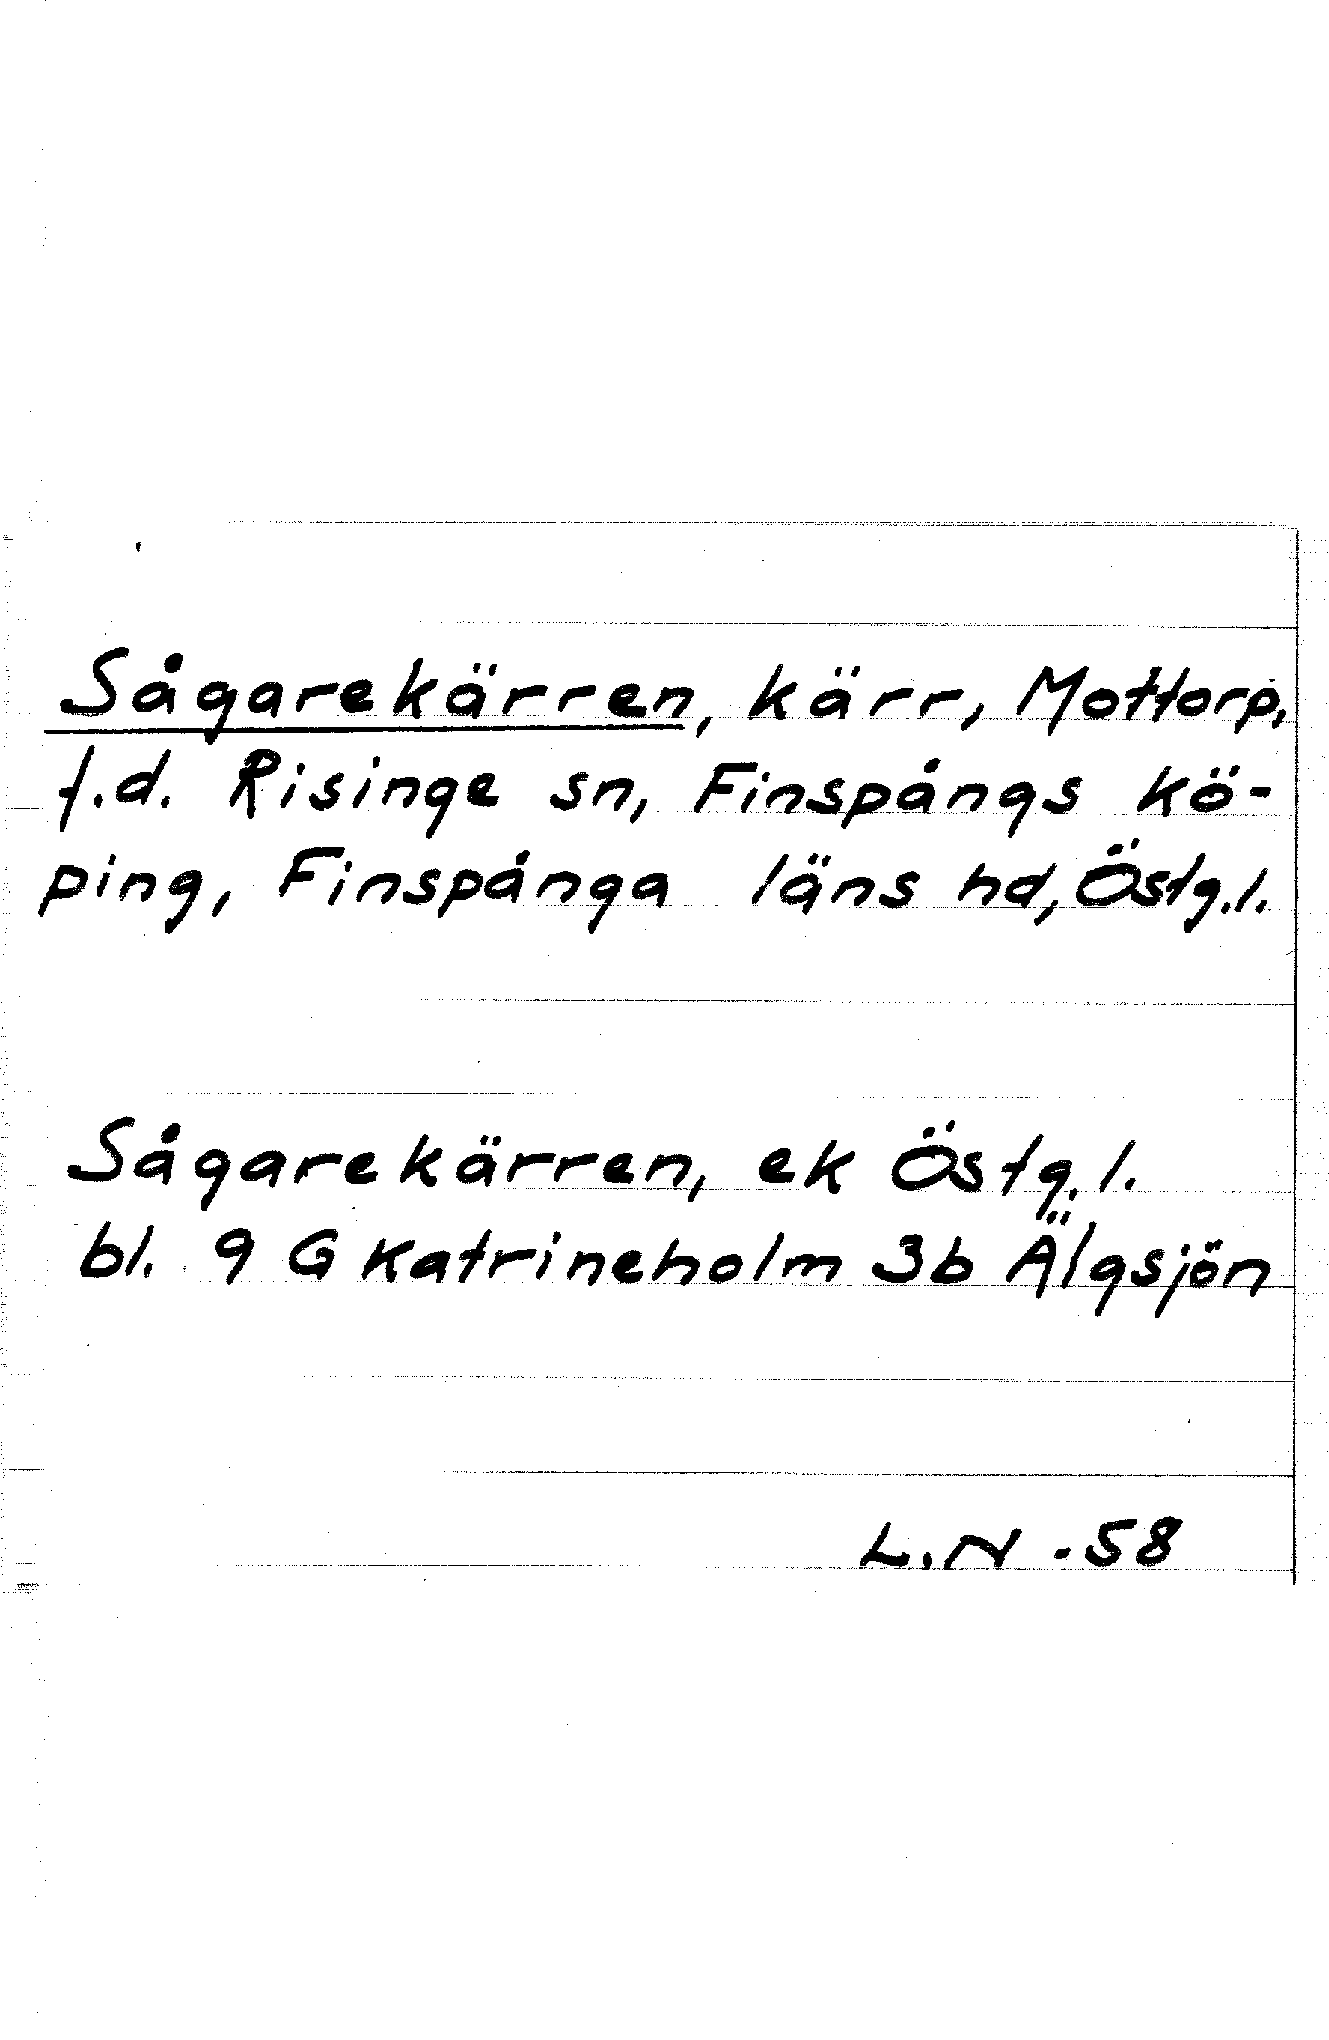 Sågarekärren, kärr, Mottorp,
f.d. Risinge sn, Finspångs kö-
ping, Finspånga läns hd, Östg.l.
Sågarekärren, ek Östg.l.
bl. 9 G Katrineholm 3b Älgsjön
L.N -58